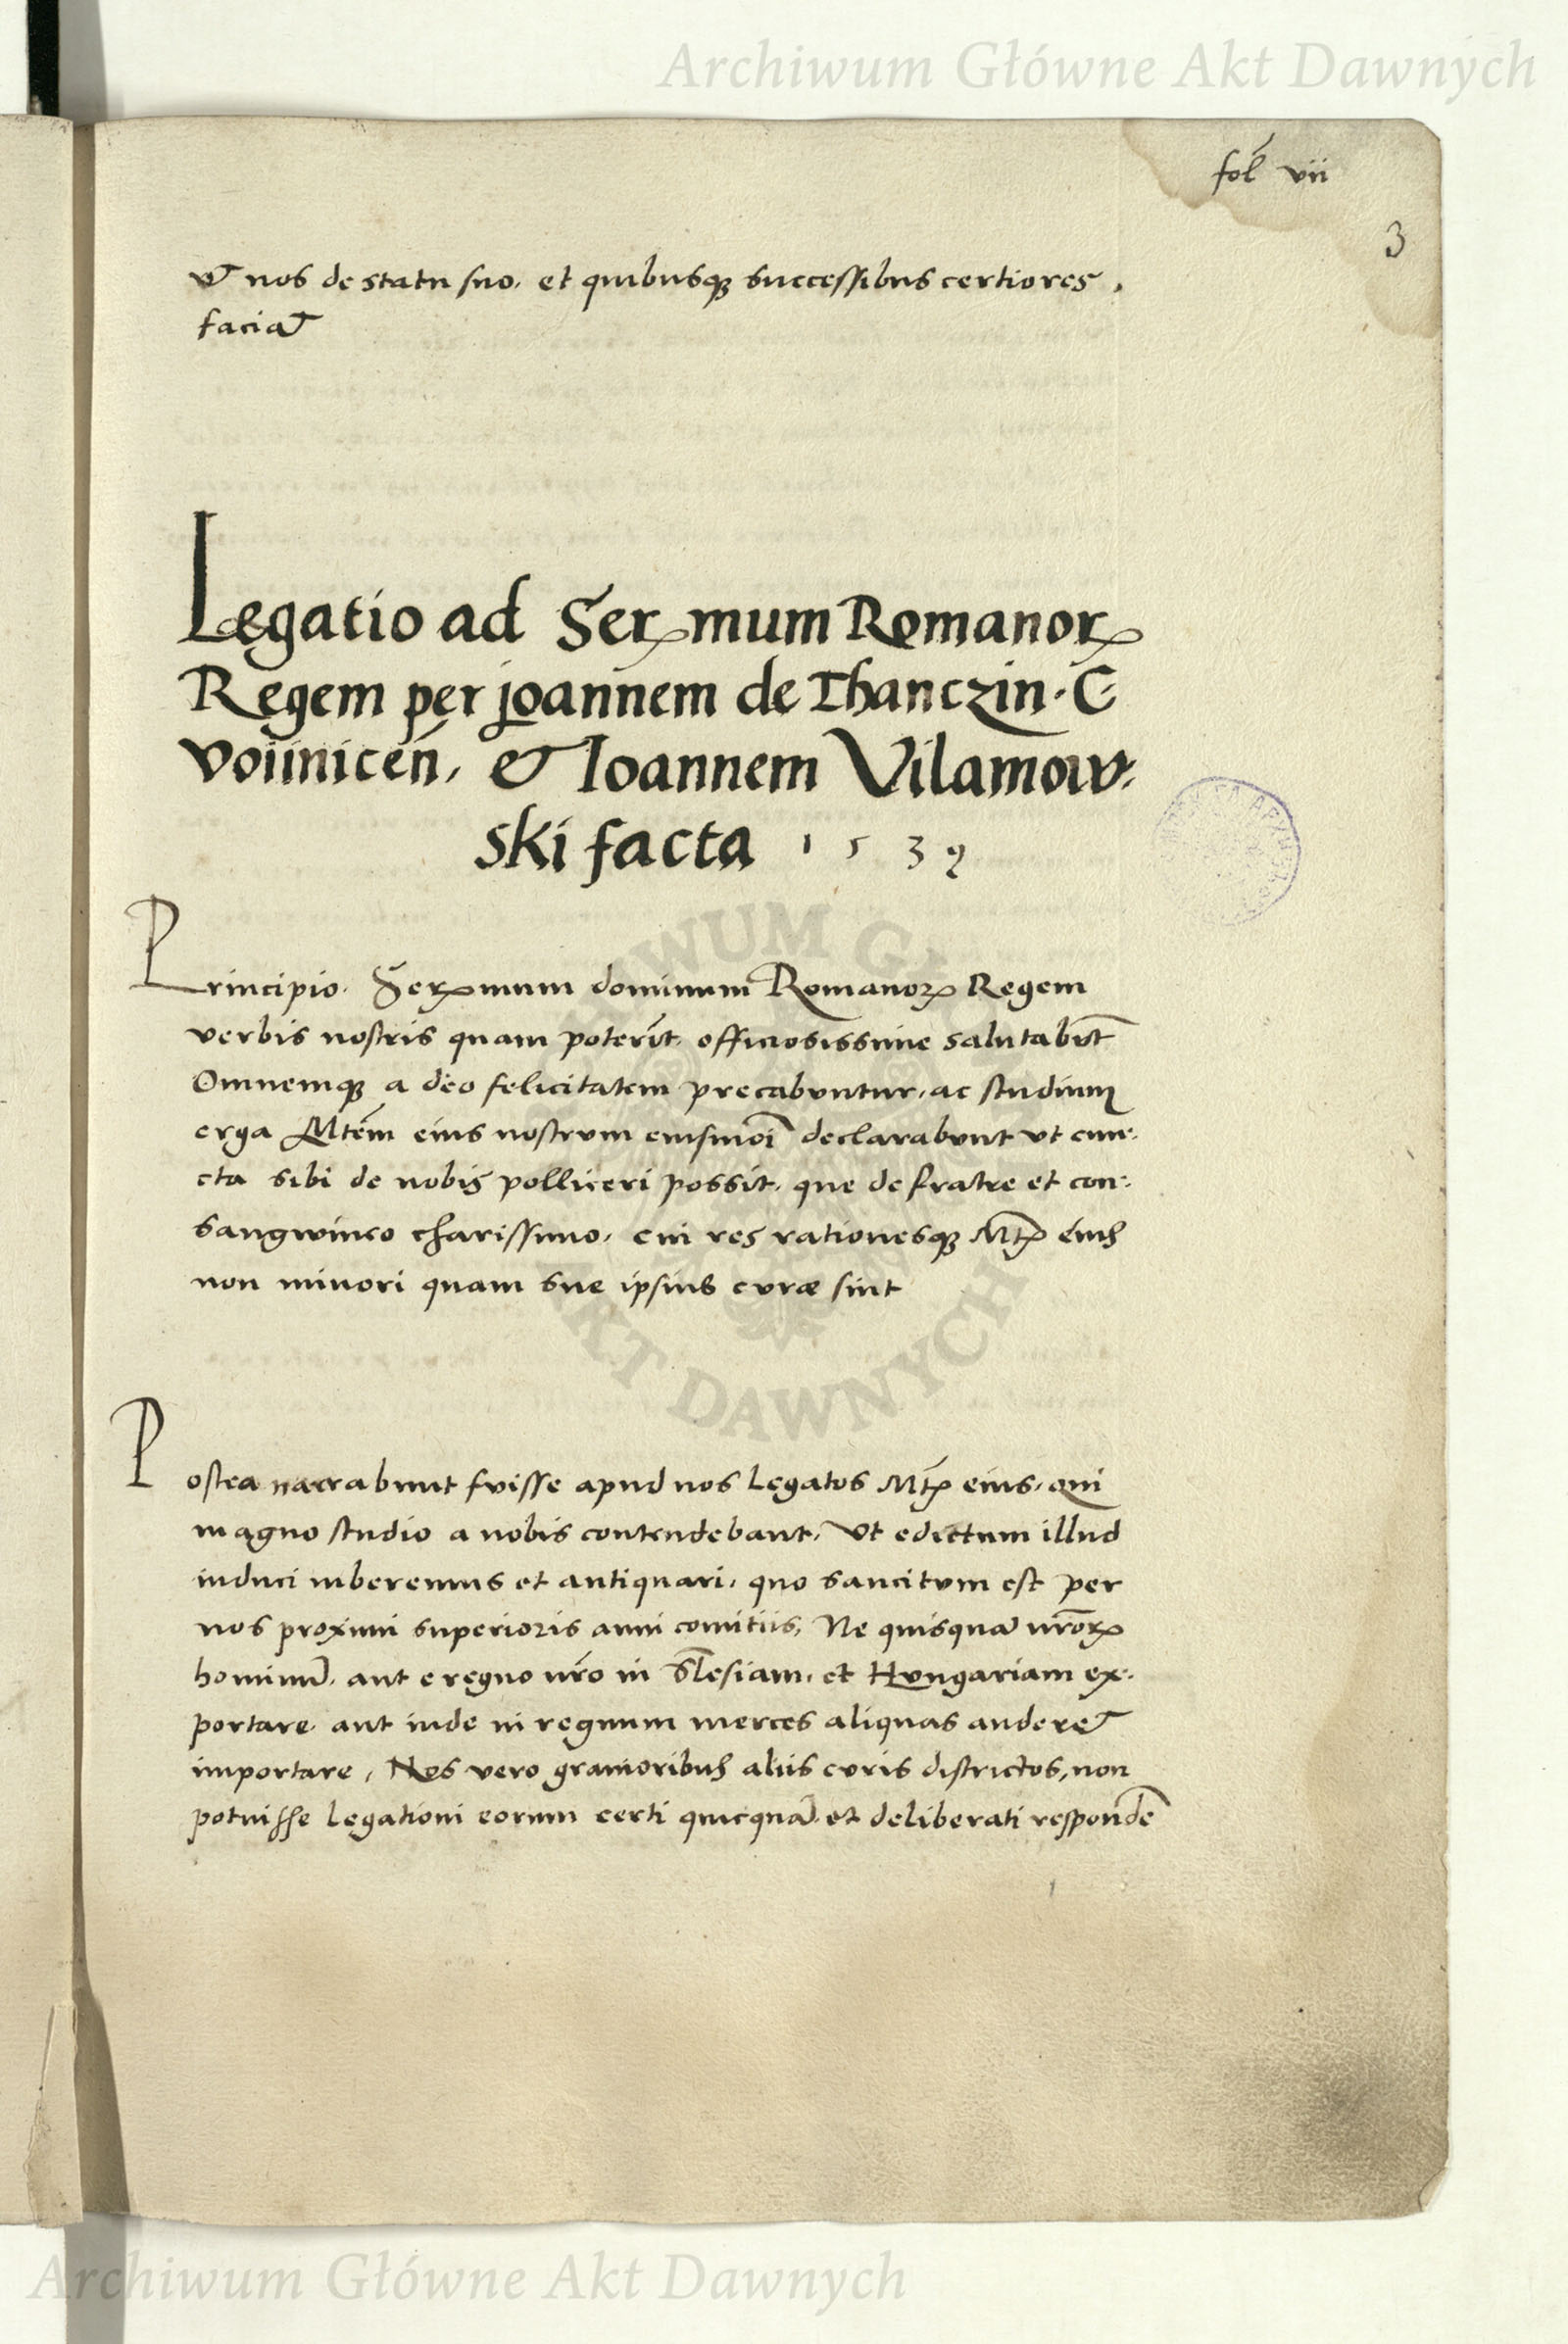 Archiwum Główne Akt Dawnych
fol̄ vii
3
et nos de statu suo, et quibusqꝫ successibus certiores
faciat
Legatio ad Serꝫmum Romanoꝝ
Regem per joannem de Thanczin. C
voiinicen̄, & Ioannem Vilamow:
ski facta 1539
Principio. Serꝫmum dominum Romanoꝝ Regem
verbis nostris quam poterīt, officiosissime salutabūt
Omnemqꝫ a deo felicitatem precabuntur, ac studium
erga Mtēm eius nostrum eiusmōi declarabunt ut cun:
cta sibi de nobis polliceri possit, que de fratre et con:
sangwineo charissimo, cui res rationesqꝫ Mtꝭ eius
non minori quam sue ipsius curæ sint
Postea narrabunt fuisse apud nos Legatos Mtꝭ eius, qui
magno studio a nobis contendebant, Ut edictum illud
induci iuberemus et antiquari, quo sancitum est per
nos proximi superioris anni comitiis, Ne quisquā nr̄oꝝ
hominū, aut e regno nr̄o in Slesiam, et Hungariam ex:
portare, aut inde in regnum merces aliquas auderet
importare, Nos vero gravioribus aliis curis districtos, non
potuisse Legationi eorum certi quicquā, et deliberati respondē
ARCHIWUM GŁÓWNE
AKT DAWNYCH
Archiwum Główne Akt Dawnych